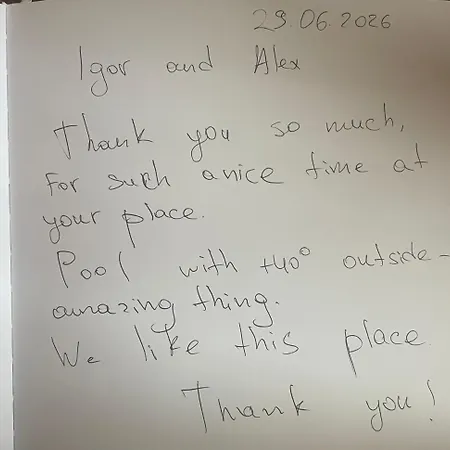 29.06.2026
Igor and Alex
Thank you so much,
for such a nice time at
your place.
Pool with +40° outside -
amazing thing.
We like this place.
Thank you!